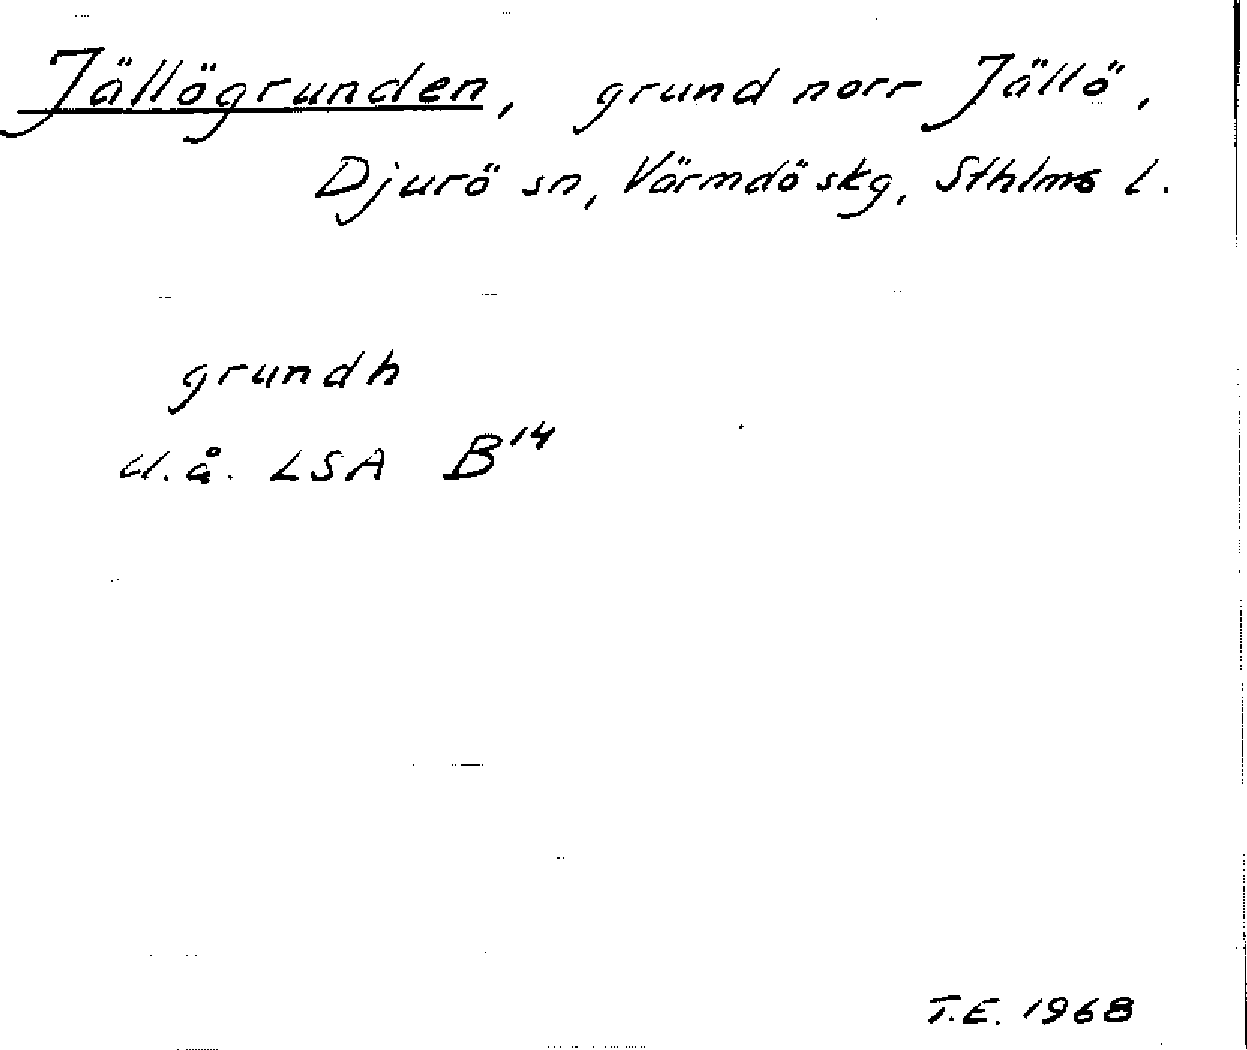 Jällögrunden, grund norr Jällö,
Djurö sn, Värmdö skg, Sthlms l.
grundh
u.å. LSA B¹⁴
T.E. 1968